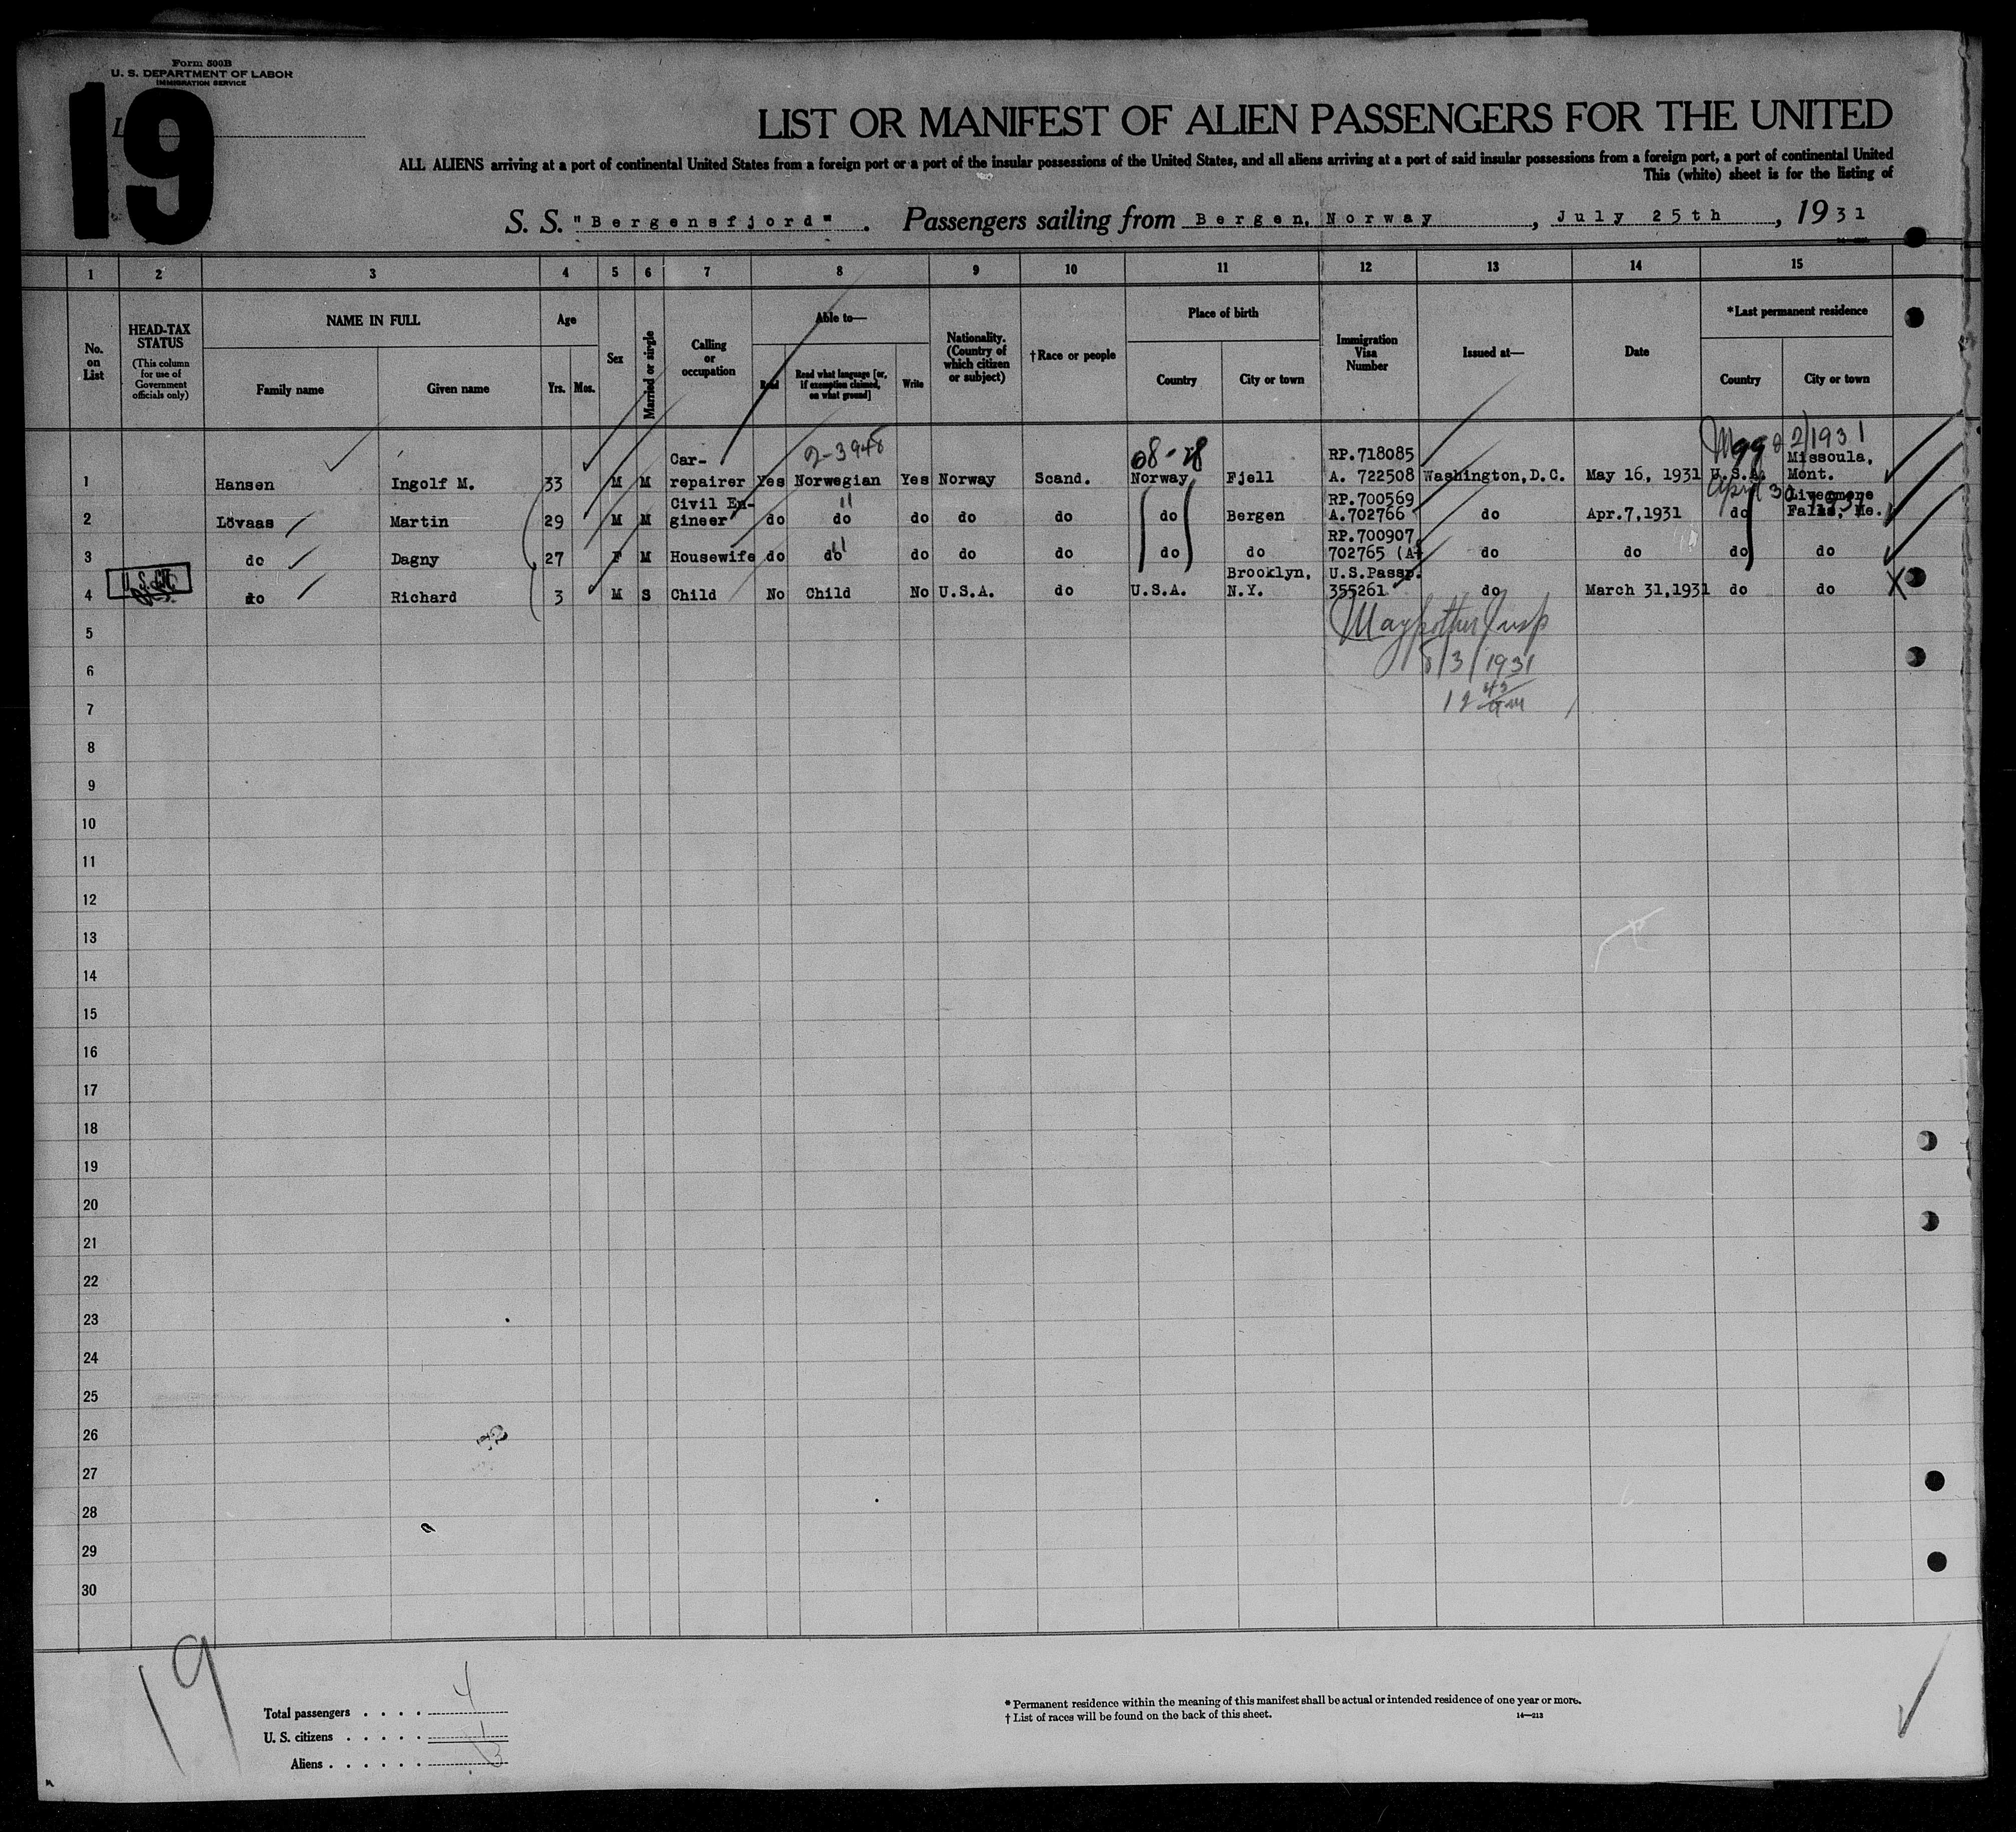 Form 500B
U. S. DEPARTMENT OF LABOR
IMMIGRATION SERVICE
19
LIST OR MANIFEST OF ALIEN PASSENGERS FOR THE UNITED
ALL ALIENS arriving at a port of continental United States from a foreign port or a port of the insular possessions of the United States, and all aliens arriving at a port of said insular possessions from a foreign port, a port of continental United
This (white) sheet is for the listing of
S. S. "Bergensfjord". Passengers sailing from Bergen, Norway, July 25th, 1931
1 2 3 4 5 6 7 8 9 10 11 12 13 14 15
No. on List
HEAD-TAX STATUS
(This column for use of Government officials only)
NAME IN FULL
Family name Given name
Age
Yrs. Mos.
Sex
Married or single
Calling or occupation
Able to—
Read Read what language [or, if exemption claimed, on what ground] Write
Nationality. (Country of which citizen or subject)
†Race or people
Place of birth
Country City or town
Immigration Visa Number
Issued at—
Date
*Last permanent residence
Country City or town
2-3948
2/1931
1 Hansen Ingolf M. 33 M M Car-repairer Yes Norwegian Yes Norway Scand. Norway Fjell RP.718085 A. 722508 Washington,D.C. May 16, 1931 U.S.A. Missoula, Mont.
2 Lövaas Martin 29 M M Civil En-gineer do do do do do do Bergen RP.700569 A.702766 do Apr.7,1931 do Livermore Falls, Me.
3 do Dagny 27 F M Housewife do do do do do do do RP.700907 702765 (A do do do do
4 do Richard 3 M S Child No Child No U.S.A. do U.S.A. Brooklyn, N.Y. U.S.Passp. 355261 do March 31,1931 do do
5
8/3/1931
6
12 45
7
8
9
10
11
12
13
14
15
16
17
18
19
20
21
22
23
24
25
26
27
28
29
30
19
Total passengers . . . . 4
U. S. citizens . . . . . 1
Aliens . . . . . . 3
* Permanent residence within the meaning of this manifest shall be actual or intended residence of one year or more.
† List of races will be found on the back of this sheet. 14—213